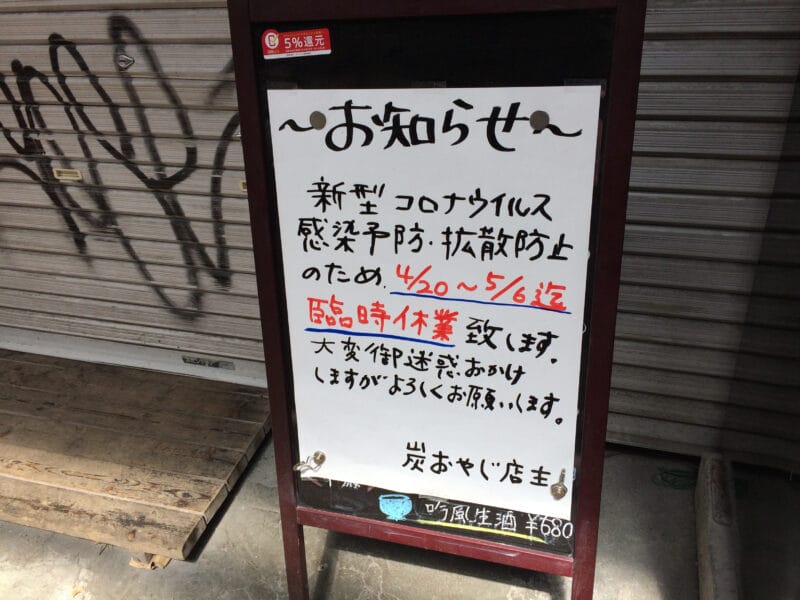 5%還元
～お知らせ～
新型コロナウイルス
感染予防・拡散防止
のため、4/20～5/6迄
臨時休業致します。
大変御迷惑おかけ
しますがよろしくお願いします。
炭おやじ店主
吟風生酒 ¥680